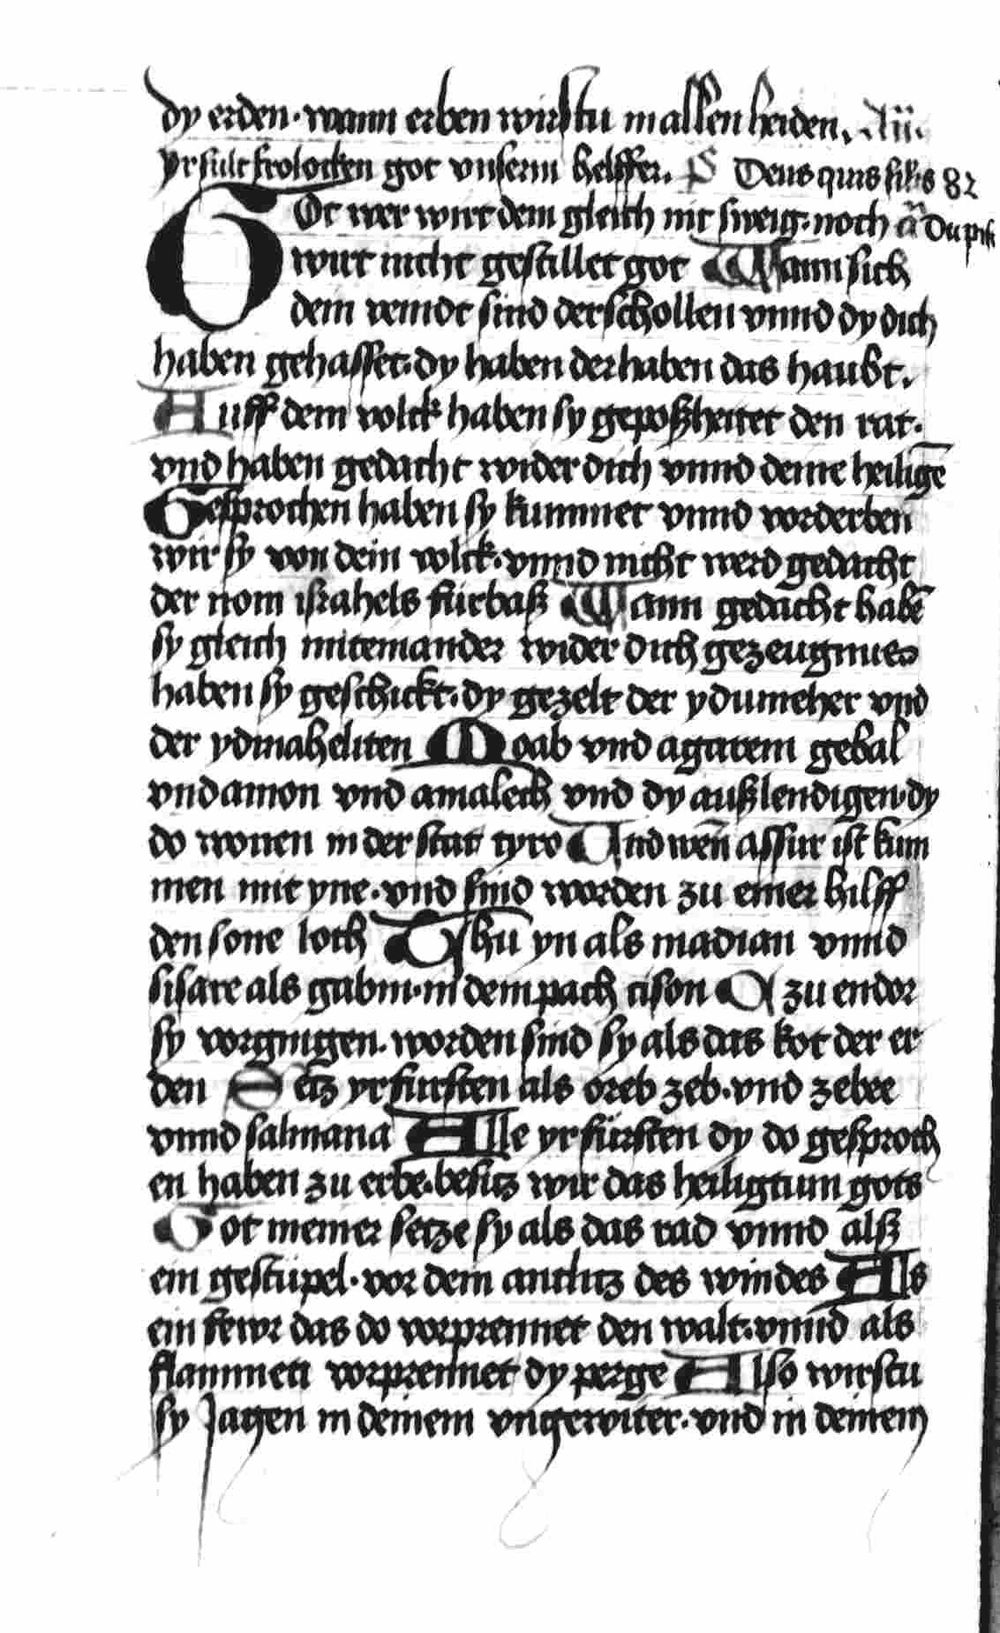 dy erden · wann erben wirstu in allen heiden. An̄.
yr sult frolocken got vnserm helffer. Ps Deus quis similis 82
GOt wer wirt dem gleich nit sweig · noch
wirt nicht gestillet got Wann sich
dem veindt sind derschollen vnnd dy dich
haben gehasset · dy haben derhaben das haubt.
Auff dem volck haben sy geposzheitet den rat ·
vnd haben gedacht wider dich vnnd deine heilige̅
Gesprochen haben sy kummet vnnd vorderben
wir sy von dein volck · vnnd nicht werd gedacht
der nom israhels fürbasz Wann gedacht habe̅
sy gleich miteinander wider dich gezeugnues
haben sy geschickt · dy gezelt der ydumeher vnd
der ysmaheliten Moab vnd agarem gebal
vnd amon vnd amalech vnd dy auszlendigen · dy
do wonen in der stat tyro Und wen̅ assur ist kum
men mit yne · vnd sind worden zu einer hilff
den sone loth Thu̅ yn als madian vnnd
sisare als gabin · in dem pach cison A zu endor
sy vorgingen · worden sind sy als das kot der er
den Setz yr fursten als oreb zeb · vnd zebee
vnnd salmana Alle yr fürsten dy do gesproch
en haben zu erbe · besitz wir das heiligtum gots
Got meiner setze sy als das rad vnnd alsz
ein gestüpel · vor dem antlitz des windes Als
ein fewr das do vorprennet den walt · vnnd als
flammen vorprennet dy perge Also wirstu
sy Jagen in deinem vngewiter · vnd in deinem